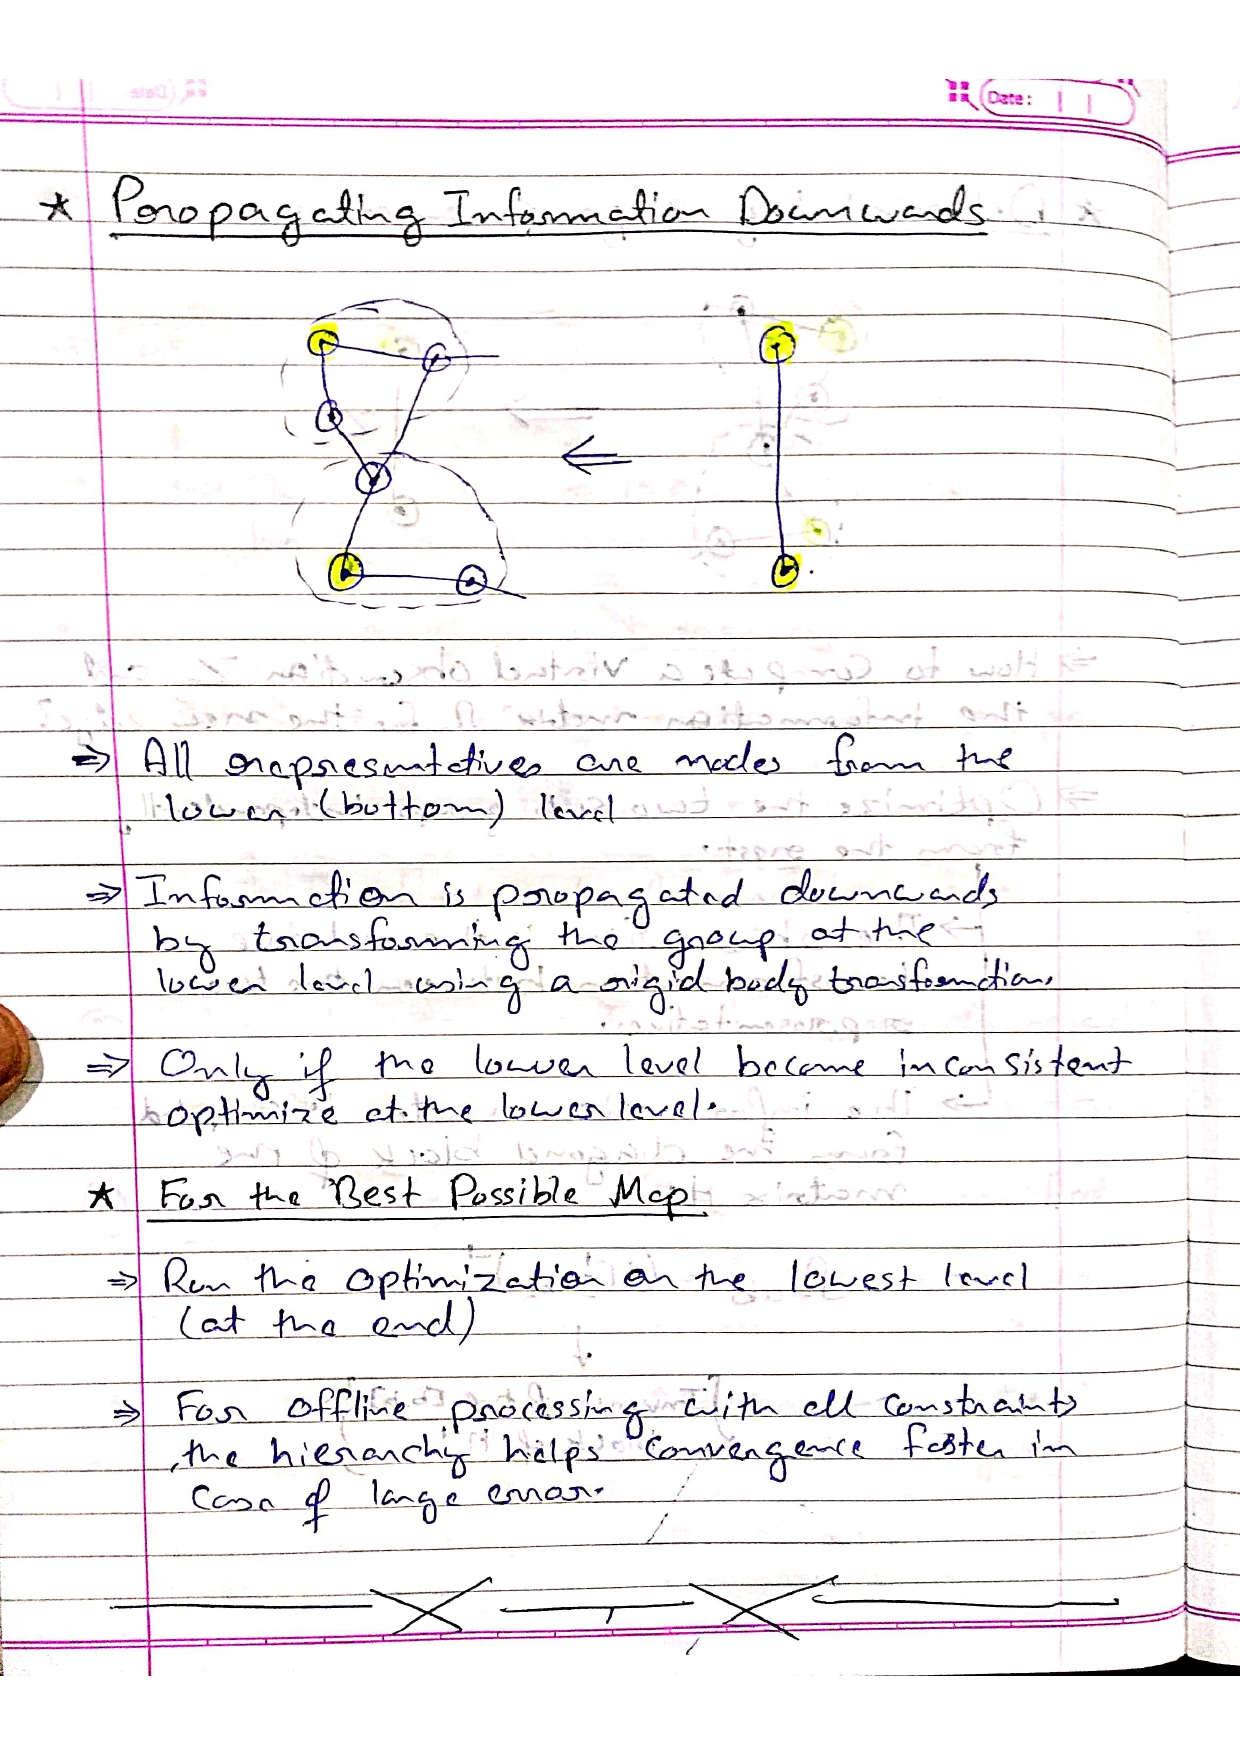 Date:
★ Propagating Information Downwards
⇒ All representatives are nodes from the
lower (bottom) level
⇒ Information is propagated downwards
by transforming the group at the
lower level using a rigid body transformation.
⇒ Only if the lower level become inconsistent
optimize at the lower level.
★ For the Best Possible Map
⇒ Run the optimization on the lowest level
(at the end)
⇒ For offline processing with all constraints
, the hierarchy helps convergence faster in
Case of large error.